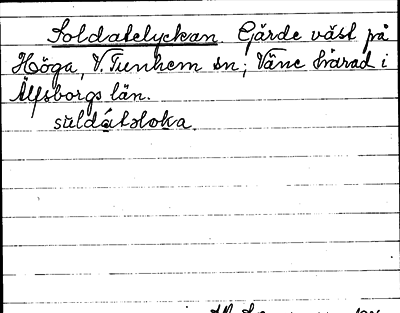 Soldatelyckan. Gärde väst på
Höga, V. Tunhem sn; Väne härad i
Älfsborgs län.
suldátsloka.